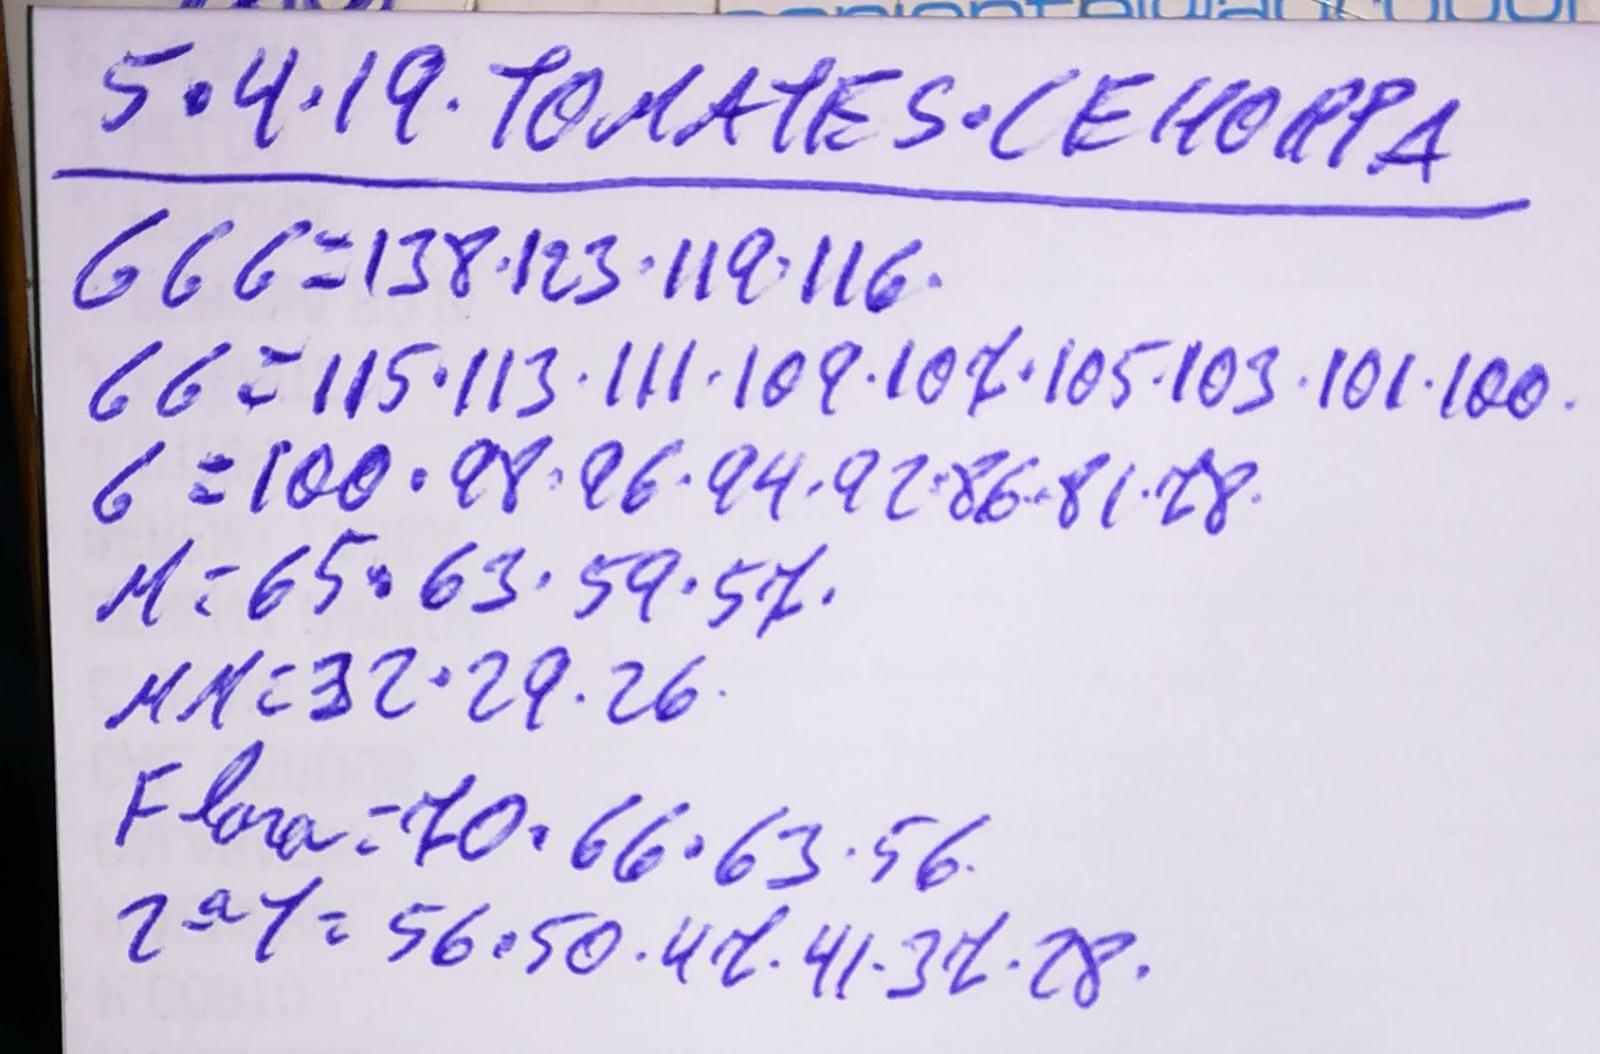 5.4.19. TOMATES. CEHORPA
GGG=138.123.119.116.
GG=115.113.111.109.107.105.103.101.100.
G=100.98.96.94.92.86.81.78.
M=65.63.59.57.
MM=32.29.26.
Flora=70.66.63.56.
2ªY=56.50.47.41.37.28.